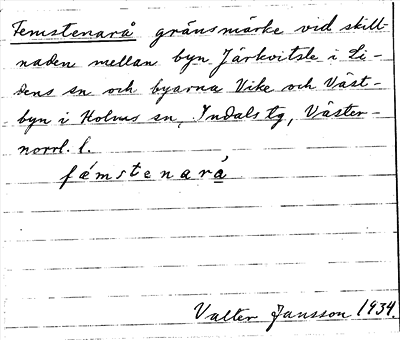 Femstenarå gränsmärke vid skill-
naden mellan byn Järkvitsle i Li-
dens sn och byarna Vike och Väst-
byn i Holms sn, Indals tg, Väster-
norrl. l.
fǽmstenarå̀
Valter Jansson 1934.